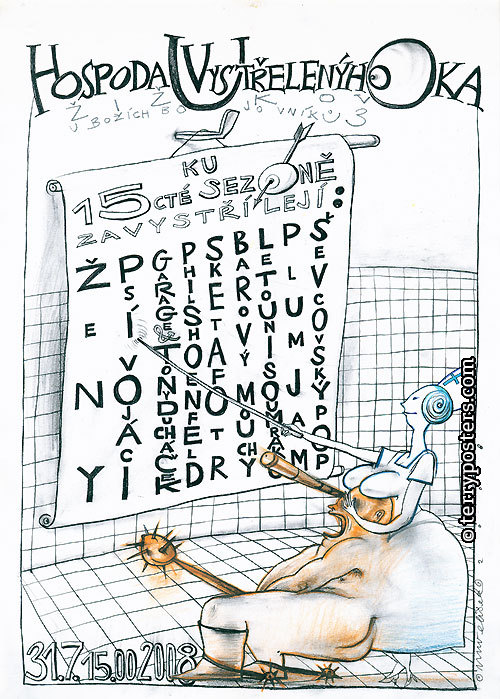 HOSPODA U VYSTŘELENÝHO OKA
ŽIŽKOV
U BOŽÍCH BOJOVNÍKŮ 3
KU
15CTÉ SEZONĚ
ZAVYSTŘÍLEJÍ:
ŽENY
PSÍ VOJÁCI
GARAGE & TONY DUCHÁČEK
PHIL SHOENFELD
SKETA FOTR
BAROVÝ MOUCHY
LETOUNI SOUMRAKU
PLUM JAM
ŠEVCOVSKÝ POP
31.7. 15.00 2008
© terryposters.com